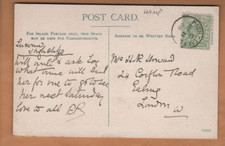 POST CARD.
FOR INLAND POSTAGE ONLY, THIS SPACE
MAY BE USED FOR CORRESPONDENCE.
ADDRESS TO BE WRITTEN HERE.
will write & ask Lay
what time will suit
her for me to go to see
her next Saturday
love to all
Mrs H.R. Howard
24 Road
Ealing
London
W